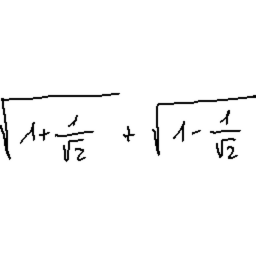 \sqrt{1+\frac{1}{\sqrt{2}}} + \sqrt{1-\frac{1}{\sqrt{2}}}